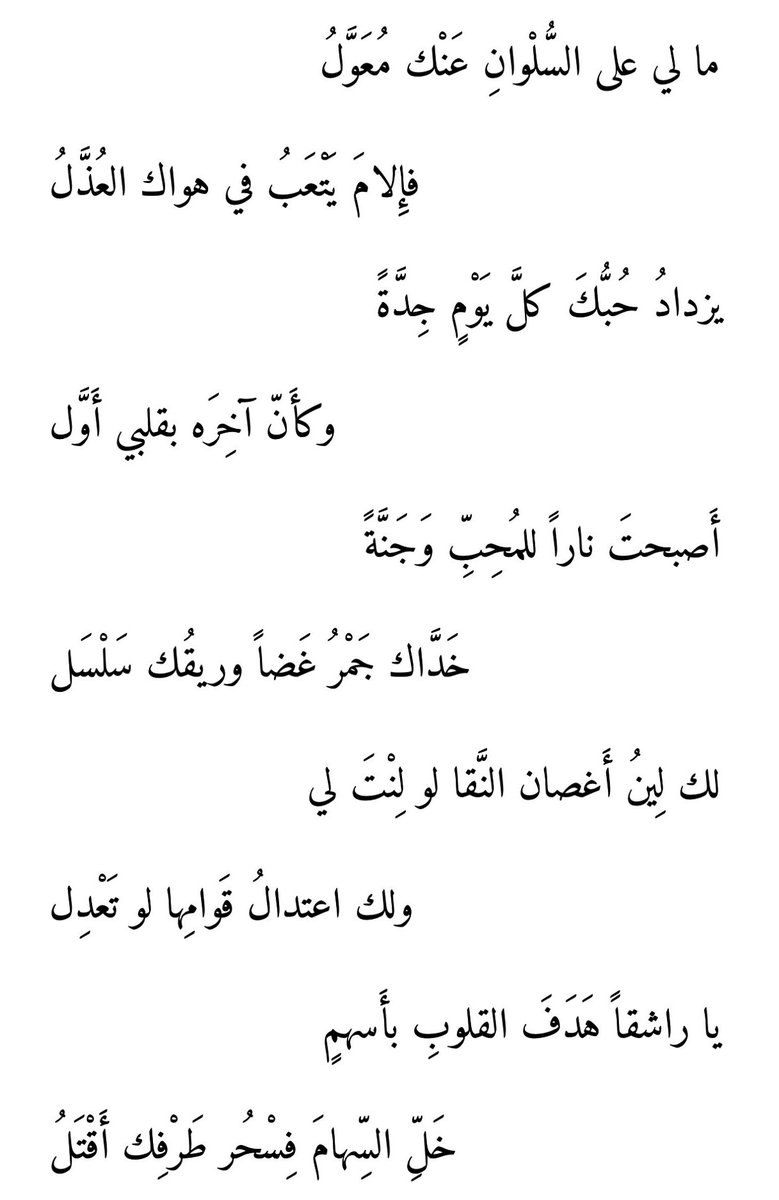 ما لي على السُّلْوانِ عَنْك مُعَوَّلُ
فإِلامَ يَتْعَبُ في هواك العُذَّلُ
يزدادُ حُبُّكَ كلَّ يَوْمٍ جِدَّةً
وكأَنّ آخِرَه بقلبي أَوَّل
أَصبحتَ ناراً للمُحِبِّ وَجَنَّةً
خَدَّاك جَمْرُ غَضاً وريقُك سَلْسَل
لك لِينُ أَغصان النَّقا لو لِنْتَ لي
ولك اعتدالُ قَوامِها لو تَعْدِل
يا راشقاً هَدَفَ القلوبِ بأَسهمٍ
خَلِّ السِّهامَ فِسْحُر طَرْفِك أَقْتَلُ